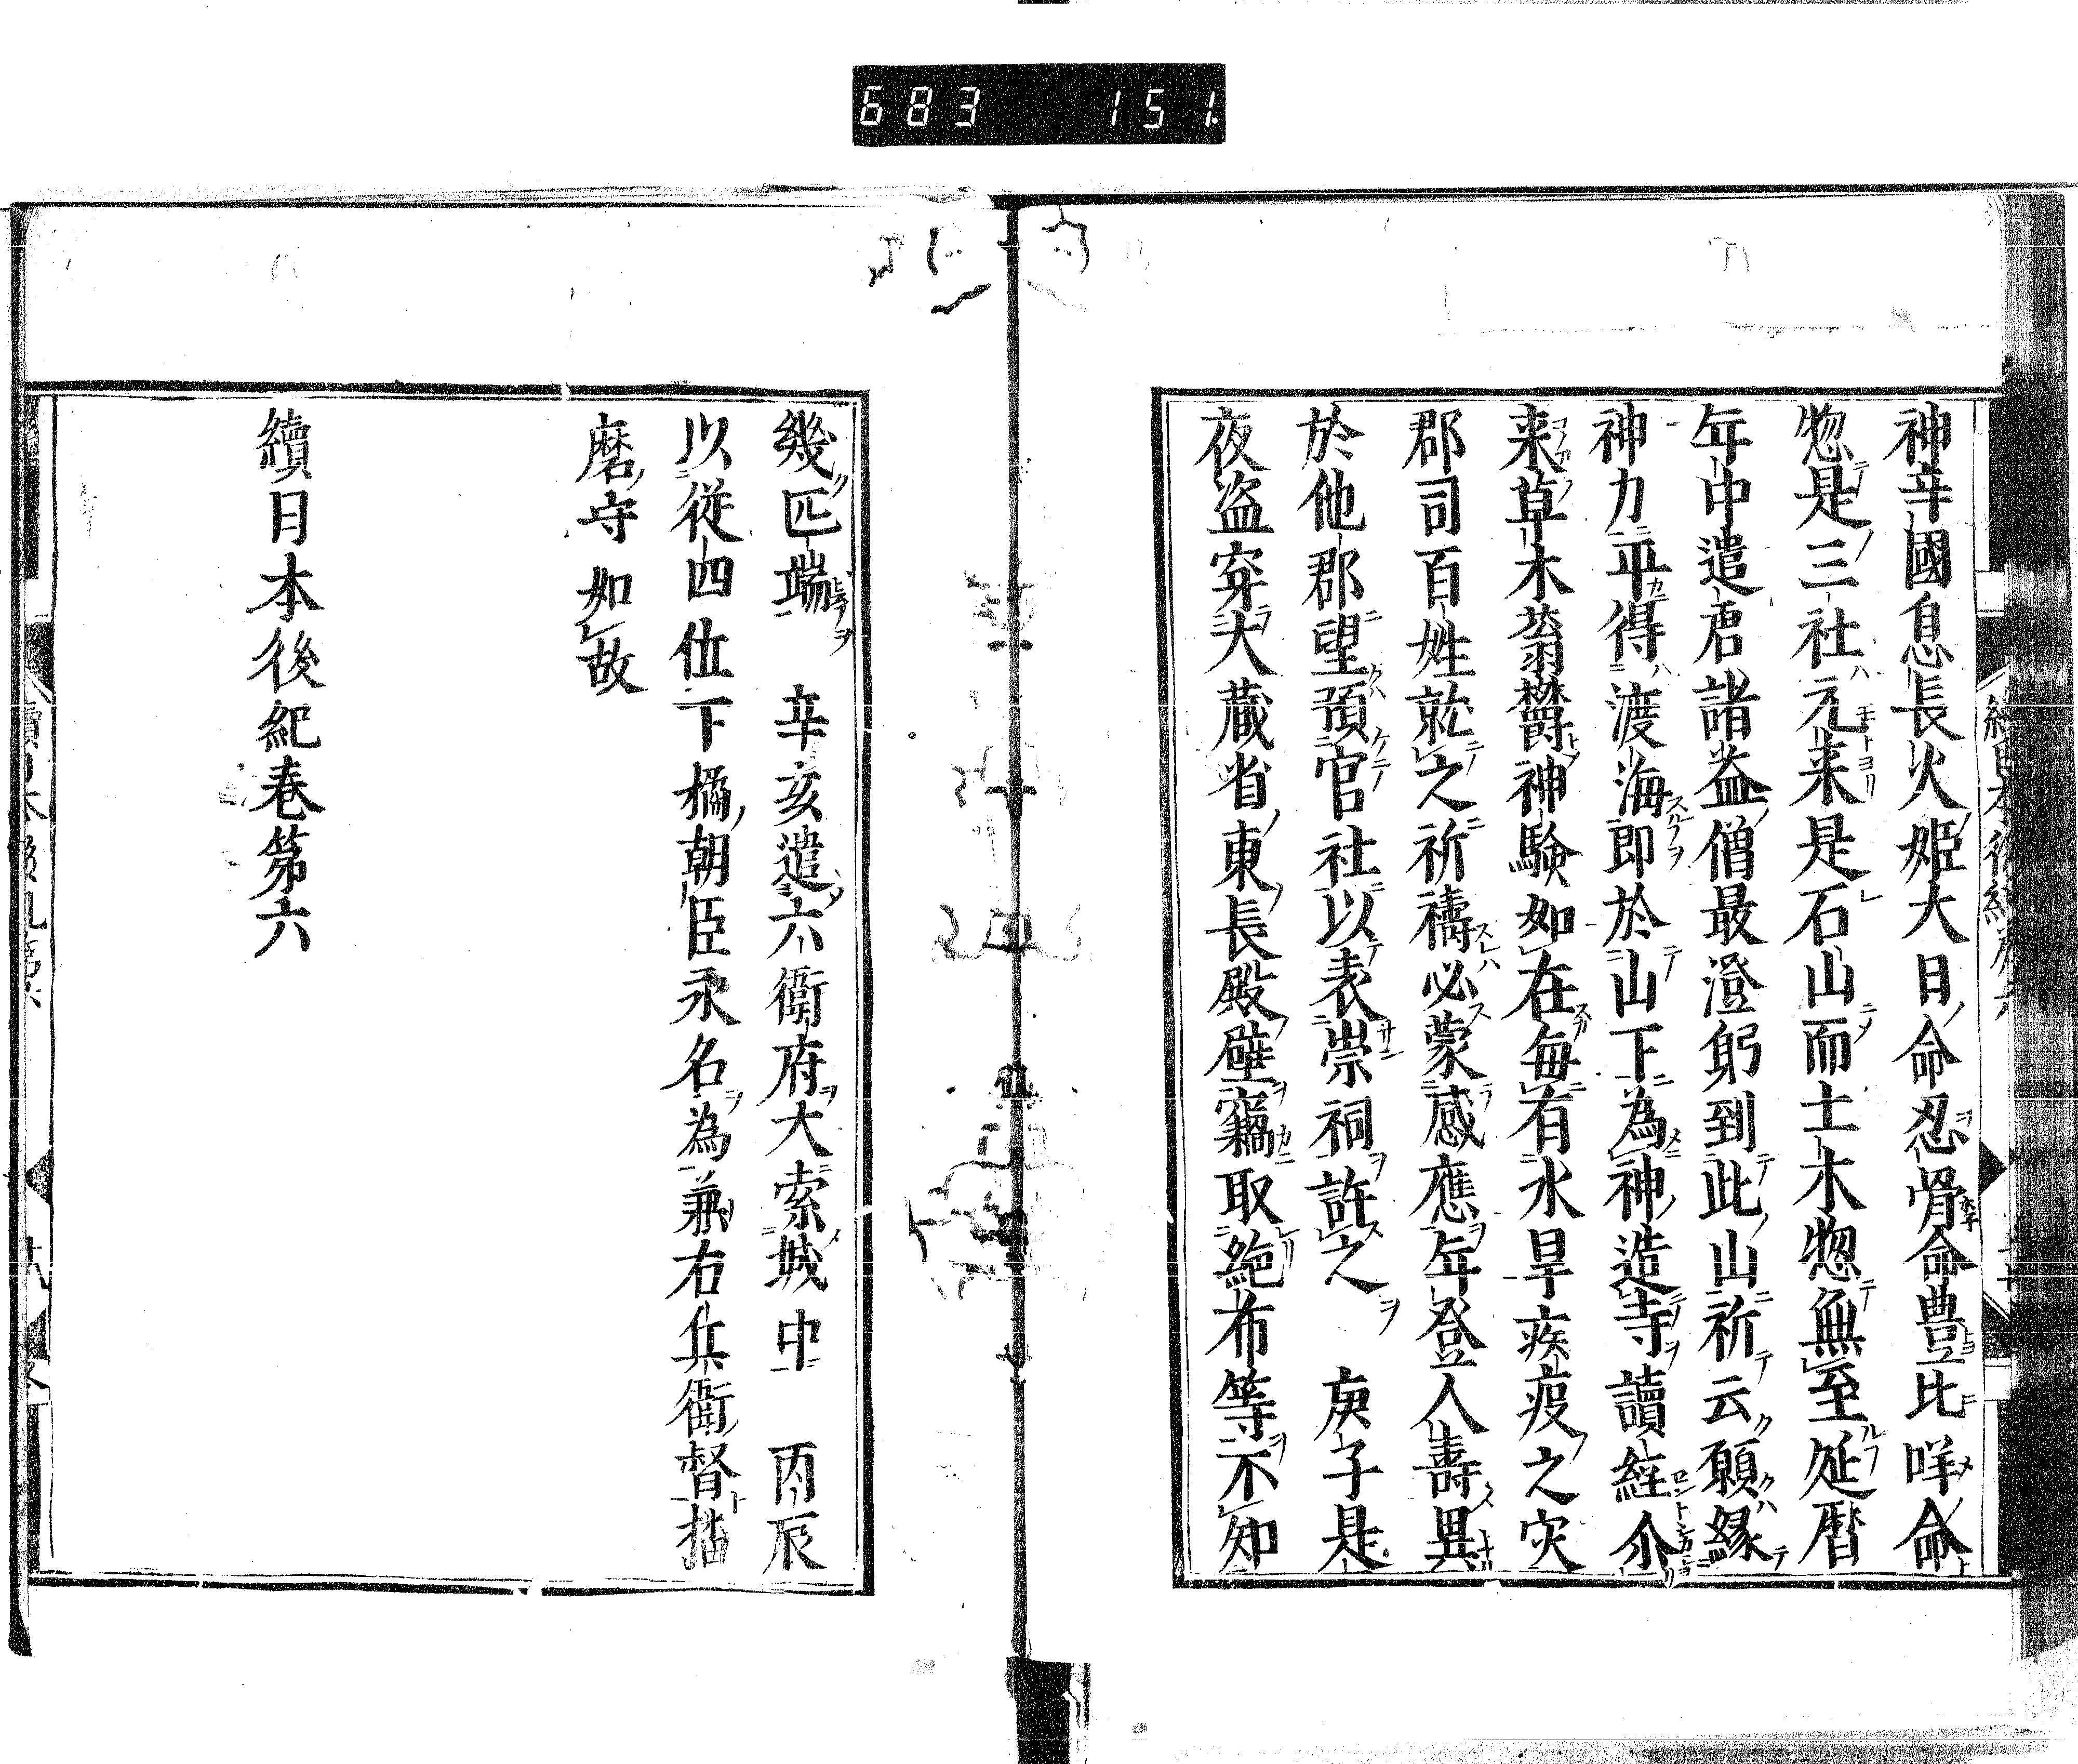 683 151
神辛國息長火姫大日命忍骨命豊比咩命
惣是三社元来是石山而土木惣無至延暦
年中遣唐請益僧最澄躬到此山祈云願縁
神力平得渡海即於山下為神造寺讀経尓
来草木蓊欝神驗如在毎有水旱疾疫之灾
郡司百姓就之祈禱必蒙感應年登人壽異
於他郡望預官社以表崇祠許之 庚子是
夜盗穿大蔵省東長殿壁竊取絁布等不知
幾匹端 辛亥遣六衛府大索城中 丙辰
以從四位下橘朝臣永名為兼右兵衛督播
磨守如故
續日本後紀巻第六